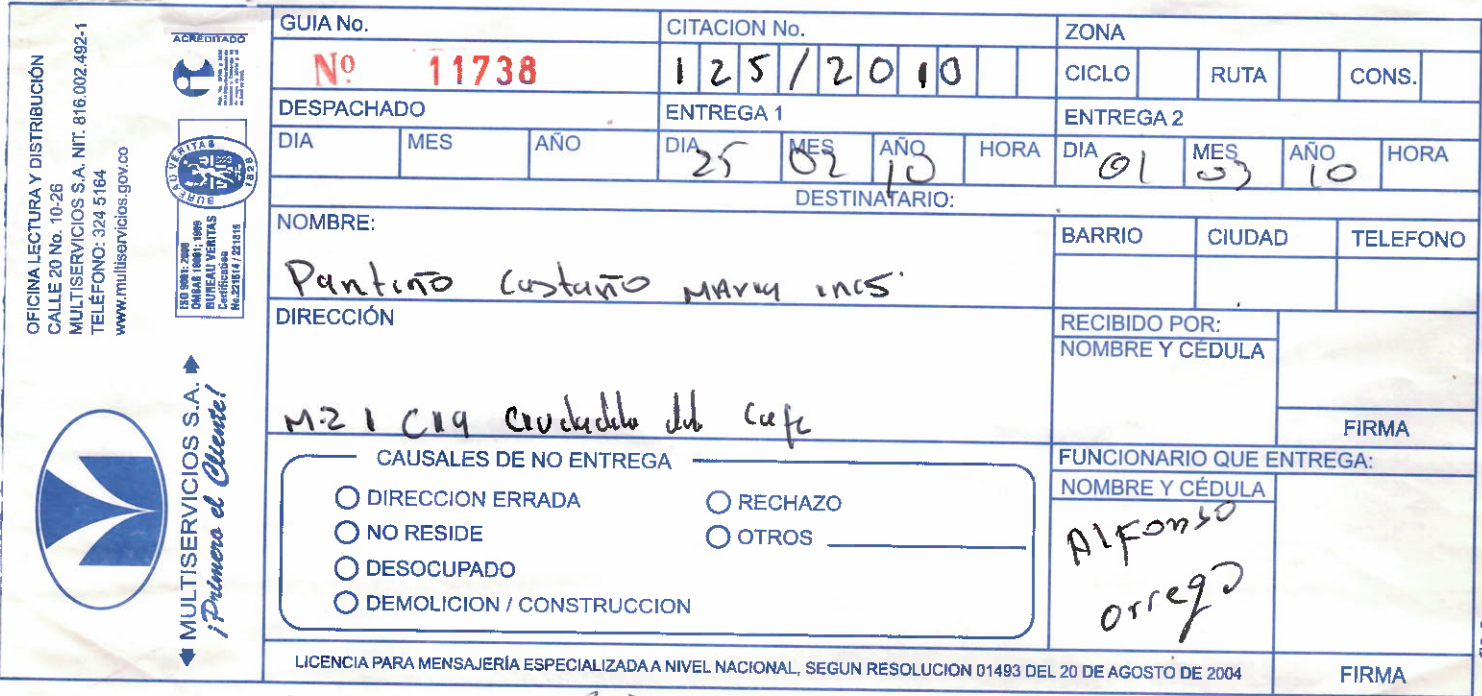 OFICINA LECTURA Y DISTRIBUCIÓN
CALLE 20 No. 10-26
MULTISERVICIOS S.A. NIT. 816.002.492-1
TELÉFONO: 324 5164
www.multiservicios.gov.co
ACREDITADO
BUREAU VERITAS
1828
ISO 9001: 2008
OHSAS 18001: 1999
BUREAU VERITAS
Certification
No.221514 / 221515
MULTISERVICIOS S.A.
¡Primero el Cliente!
GUIA No.
Nº 11738
CITACION No.
125/2010
ZONA
CICLO RUTA CONS.
DESPACHADO
DIA MES AÑO
ENTREGA 1
DIA 25 MES 02 AÑO 10 HORA
ENTREGA 2
DIA 01 MES 03 AÑO 10 HORA
DESTINATARIO:
NOMBRE:
Pantiño Castaño María ines
BARRIO CIUDAD TELEFONO
DIRECCIÓN
M.21 C119 Ciudadela del Cafe
RECIBIDO POR:
NOMBRE Y CÉDULA
FIRMA
CAUSALES DE NO ENTREGA
DIRECCION ERRADA
NO RESIDE
DESOCUPADO
DEMOLICION / CONSTRUCCION
RECHAZO
OTROS
FUNCIONARIO QUE ENTREGA:
NOMBRE Y CÉDULA
Alfonso
orrego
FIRMA
LICENCIA PARA MENSAJERÍA ESPECIALIZADA A NIVEL NACIONAL, SEGUN RESOLUCION 01493 DEL 20 DE AGOSTO DE 2004